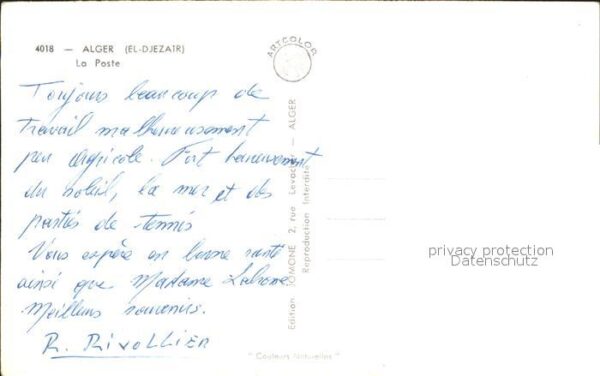 4018 — ALGER (EL-DJEZAIR)
La Poste
ARTCOLOR
Toujours beaucoup de
travail malheureusement
peu agricole. Fort heureusement
du soleil, la mer et des
parties de tennis
Vous espère en bonne santé
ainsi que Madame
Meilleurs souvenirs.
R. RIVOLLIER
Edition JOMONE 2, rue ALGER
Reproduction Interdite
" Couleurs Naturelles "
privacy protection
Datenschutz